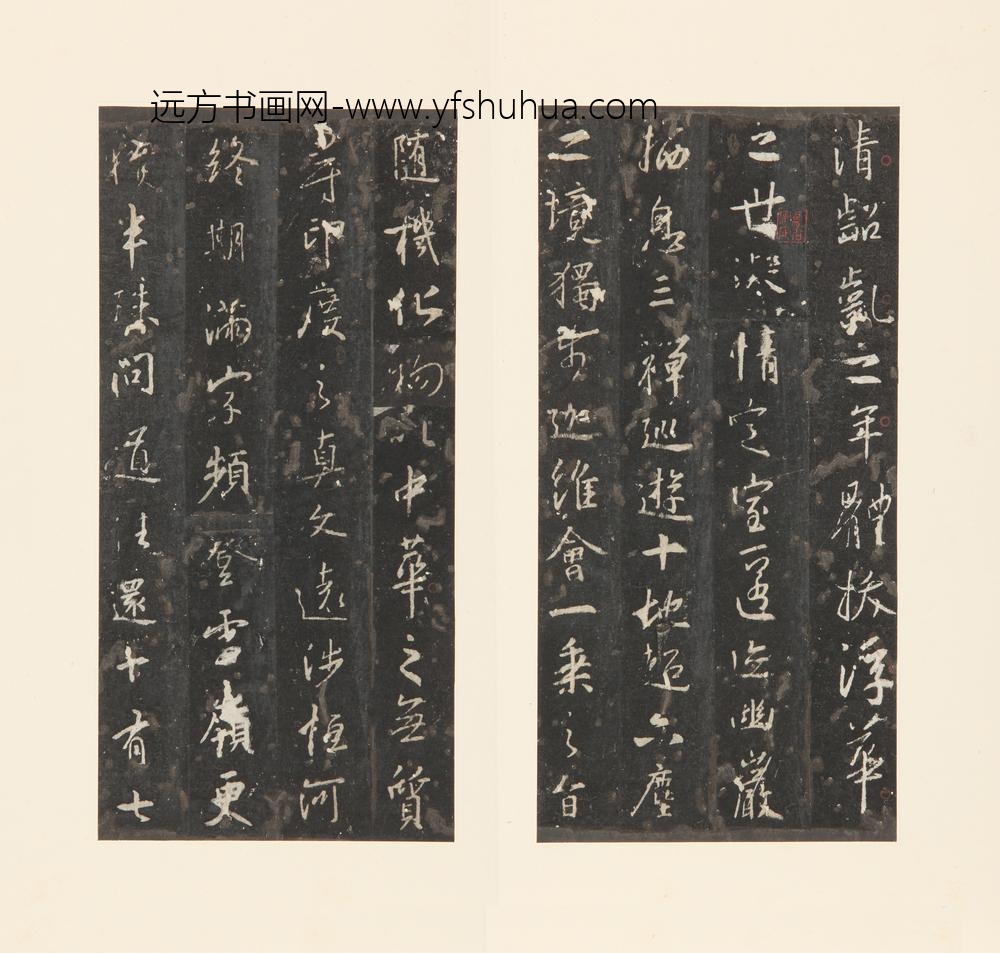 远方书画网-www.yfshuhua.com
清齠齔之年體拔浮華
之世凝情定室匿跡幽巖
栖息三禪巡遊十地超六塵
之境獨步迦維會一乘之旨
隨機化物以中華之無質
尋印度之真文遠涉恒河
終期滿字頻登雪嶺更
獲半珠問道往還十有七